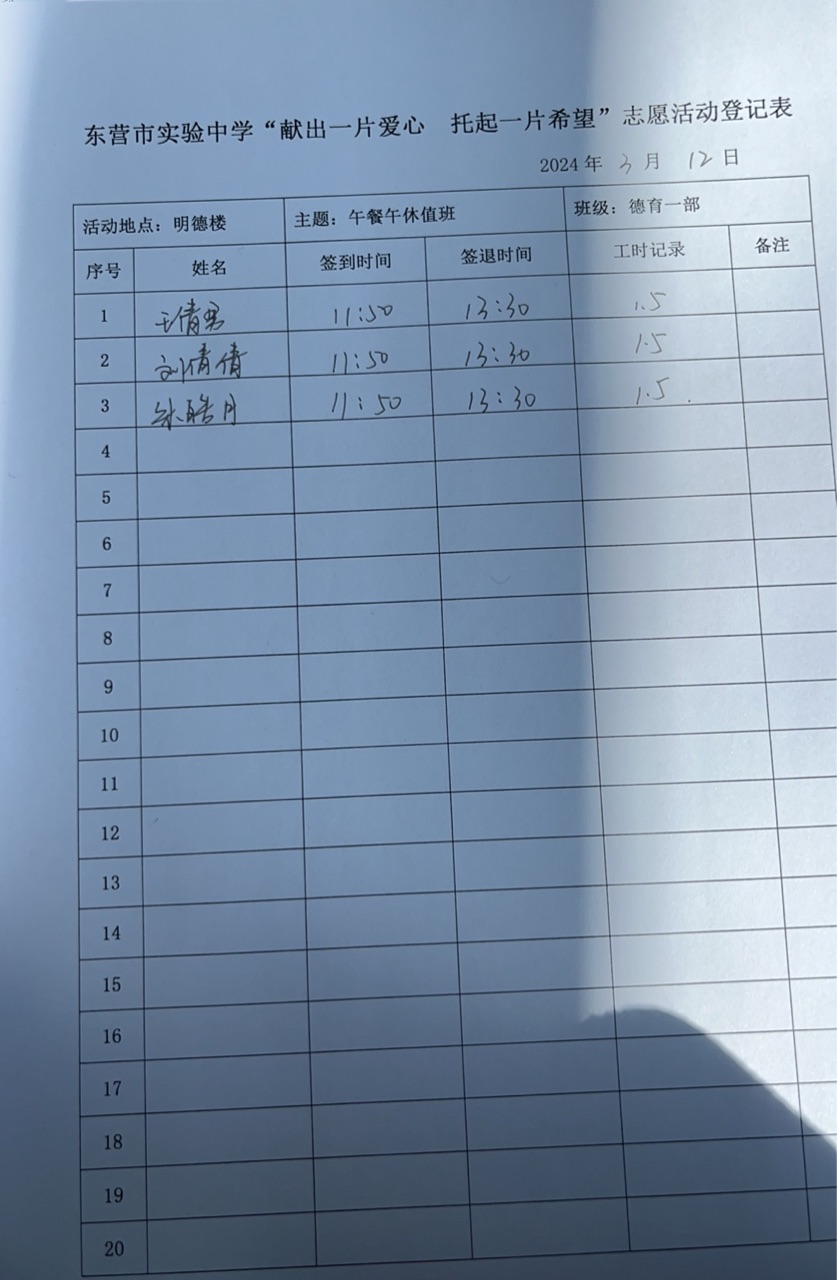 东营市实验中学“献出一片爱心 托起一片希望”志愿活动登记表
2024 年 3 月 12 日
活动地点：明德楼 主题：午餐午休值班 班级：德育一部
序号 姓名 签到时间 签退时间 工时记录 备注
1 王倩男 11:50 13:30 1.5
2 刘倩倩 11:50 13:30 1.5
3 皓月 11:50 13:30 1.5
4
5
6
7
8
9
10
11
12
13
14
15
16
17
18
19
20